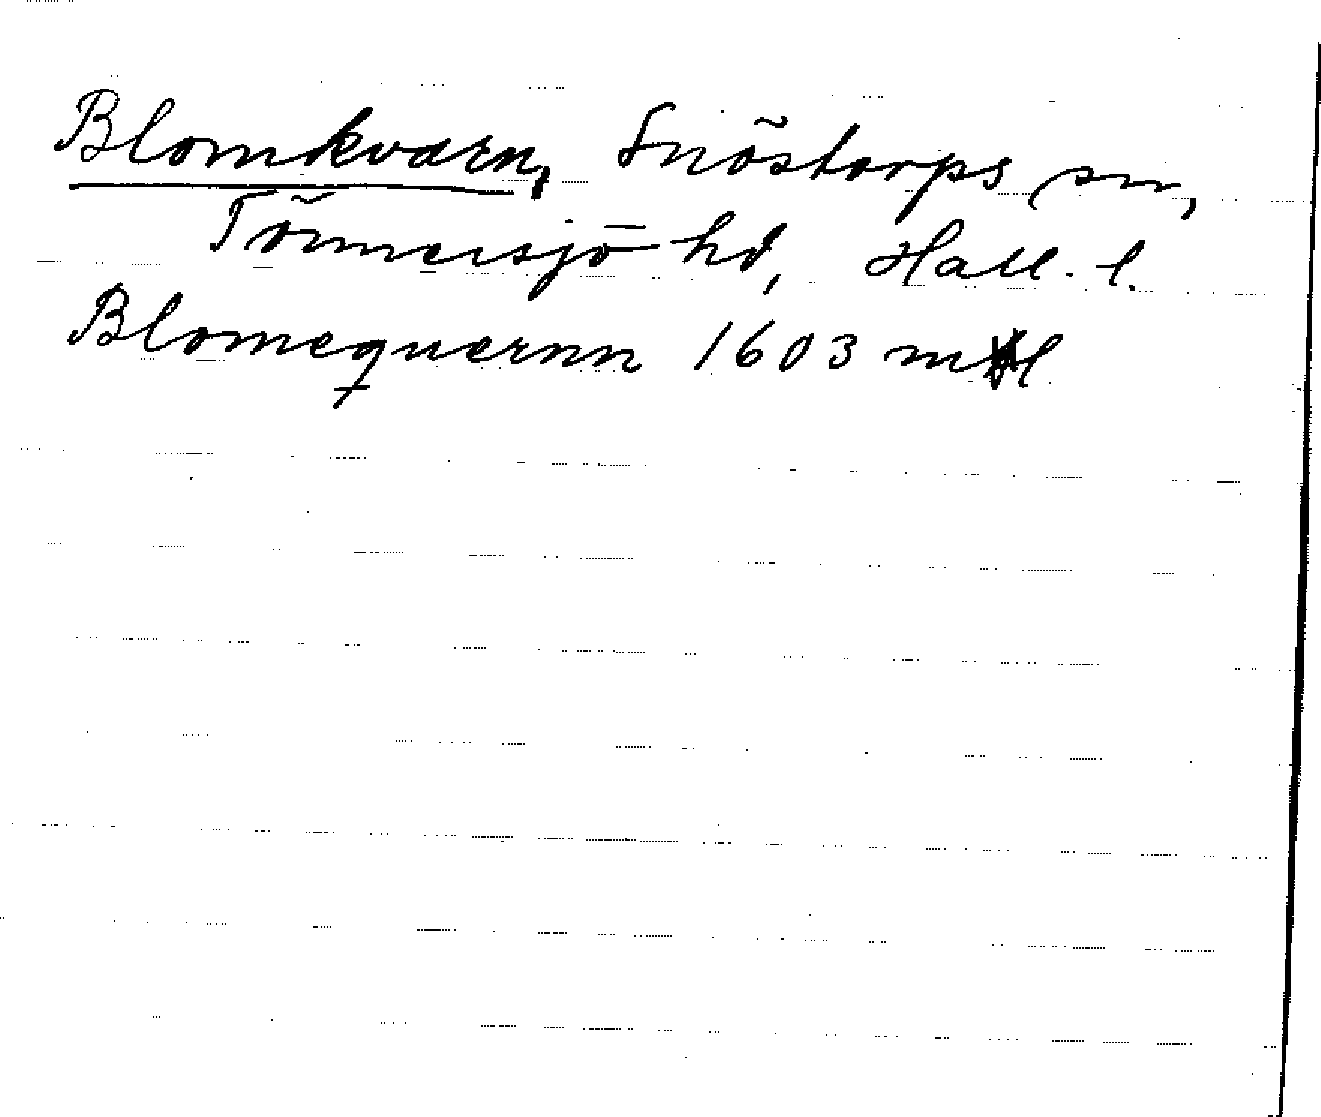 Blomkvarn, Snöstorps sn,
Tönnersjö hd, Hall. l.
Blomequernn 1603 mtl